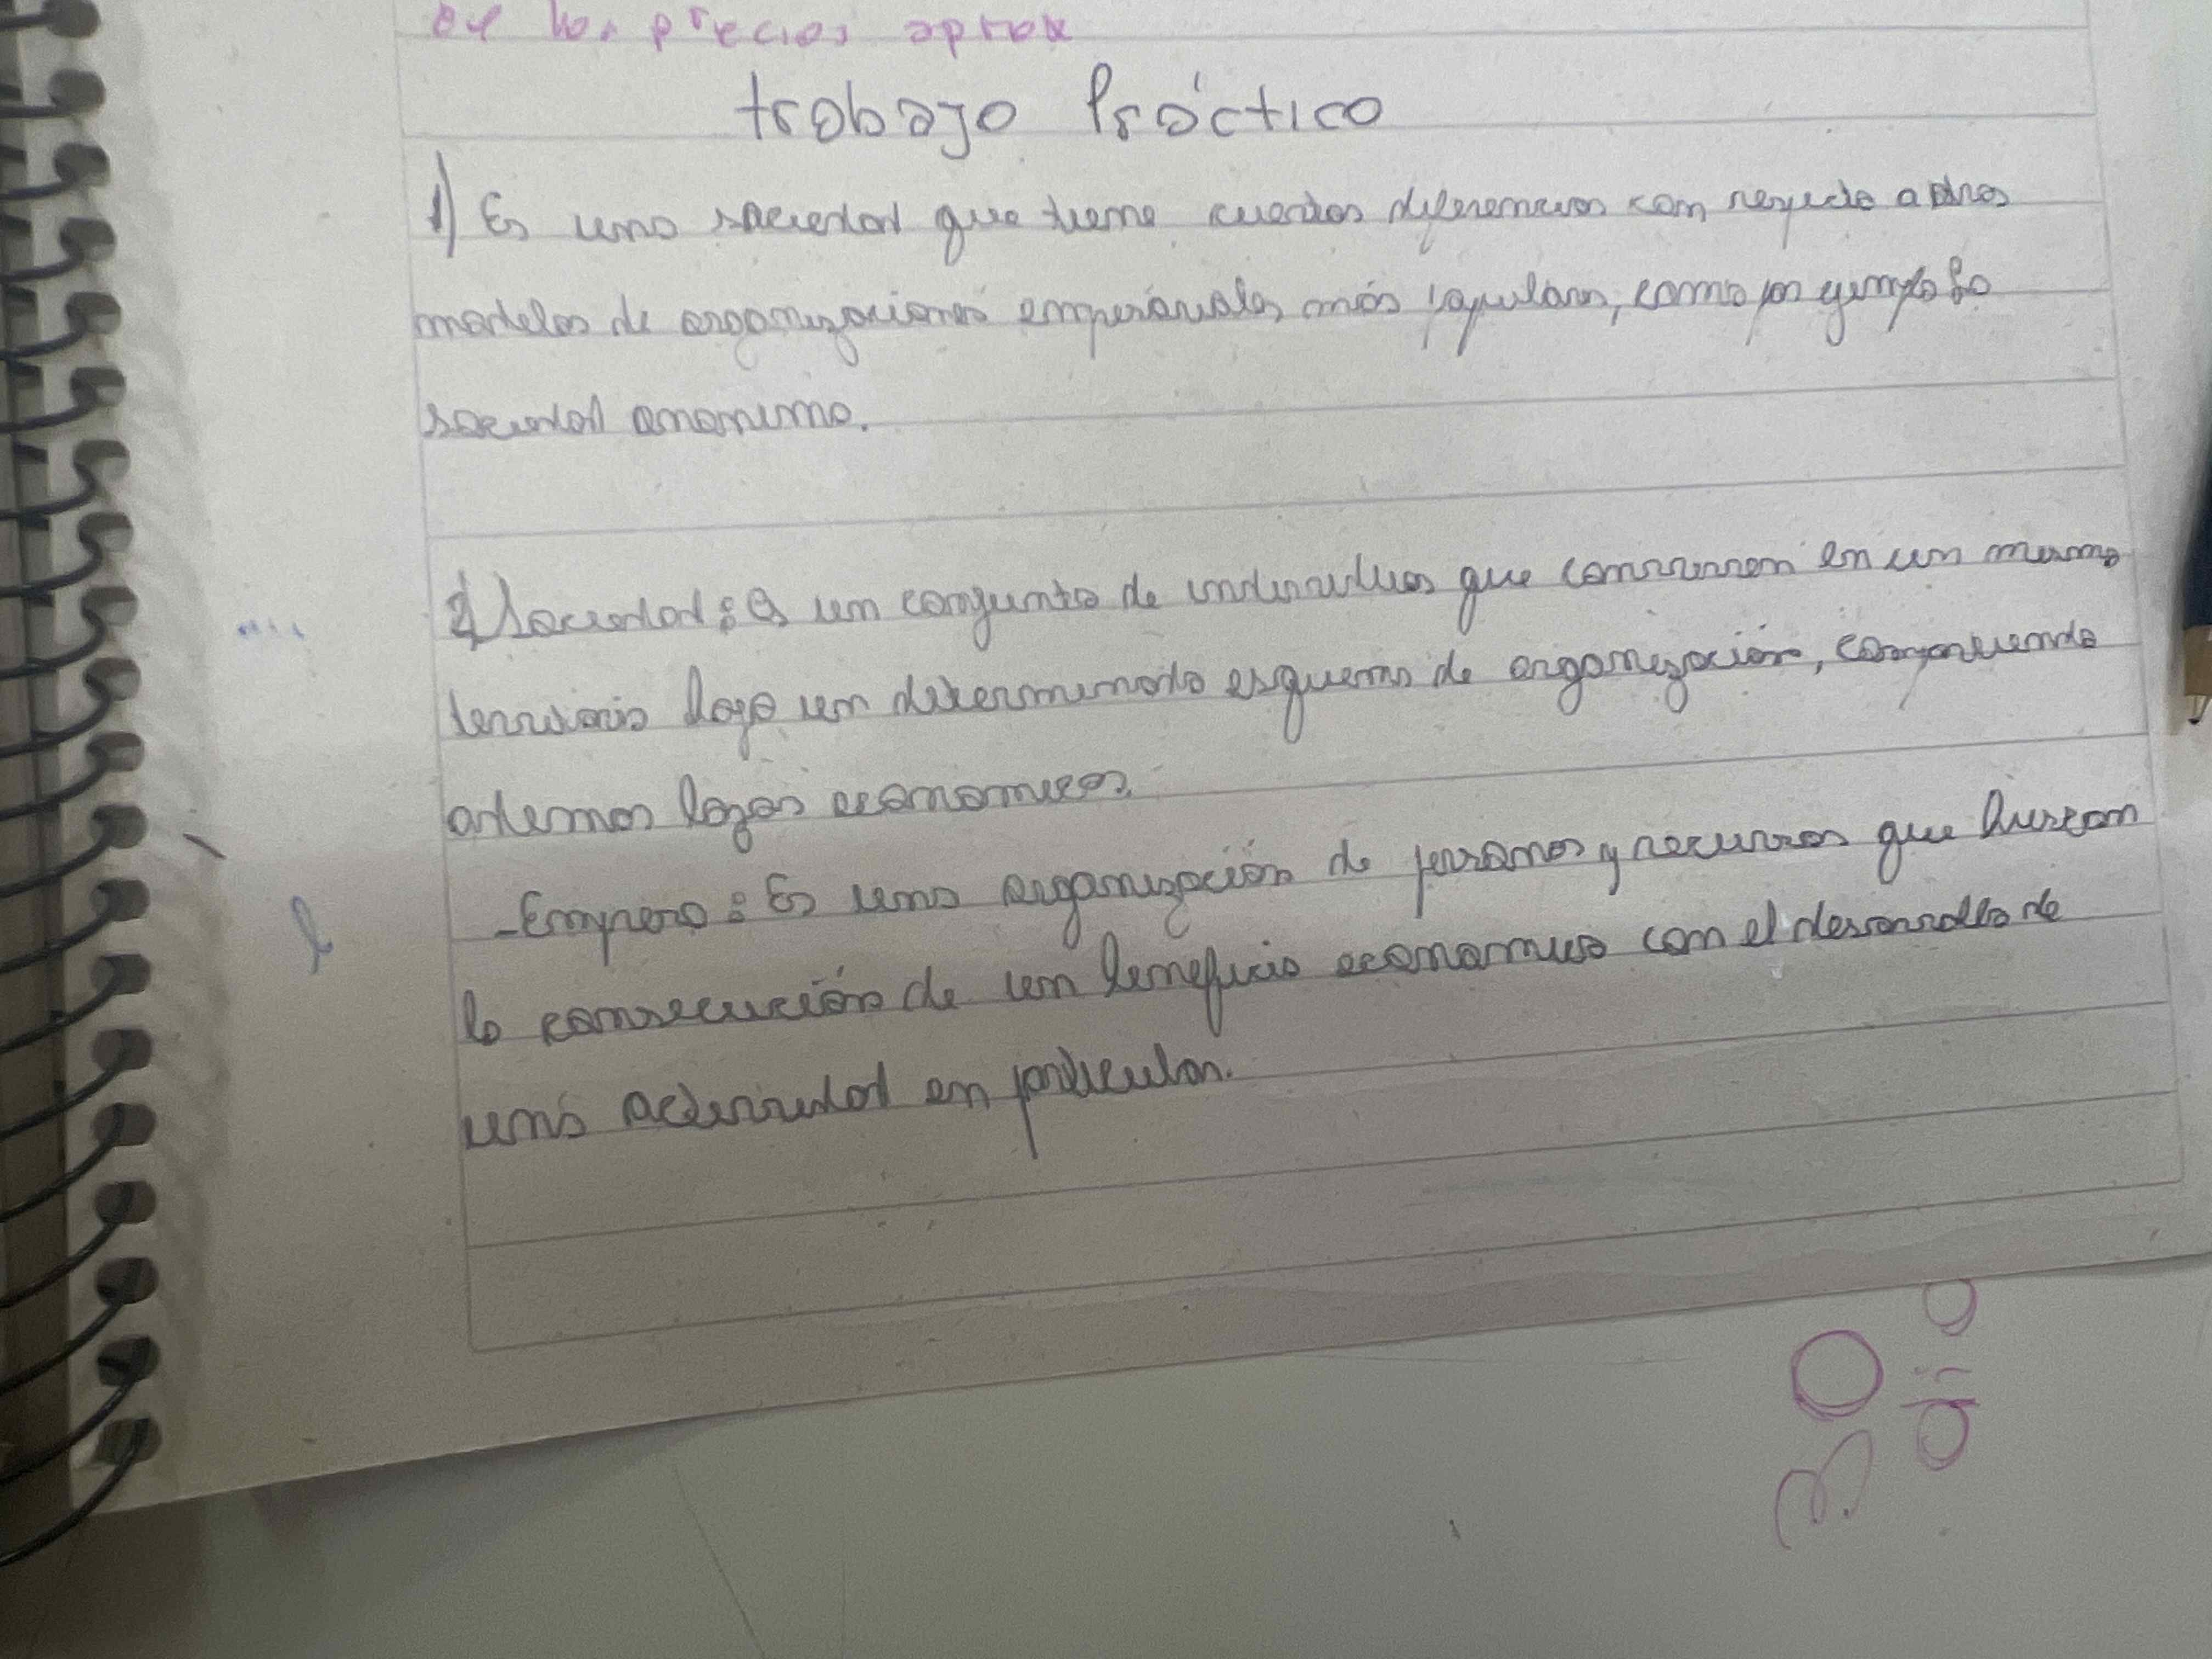 de los precios aprox
trabajo Práctico
1) Es una sociedad que tiene cuentas diferencias con respecto a otros
modelos de organizaciones empresariales más populares, como por ejemplo la
sociedad anonima.
2) Sociedad: Es un conjunto de individuos que conviven en un mismo
territorio bajo un determinado esquema de organización, compartiendo
ademas lazos economicos.
-Empresa: Es una organización de personas y recursos que buscan
la consecución de un beneficio economico con el desarrollo de
una actividad en particular.